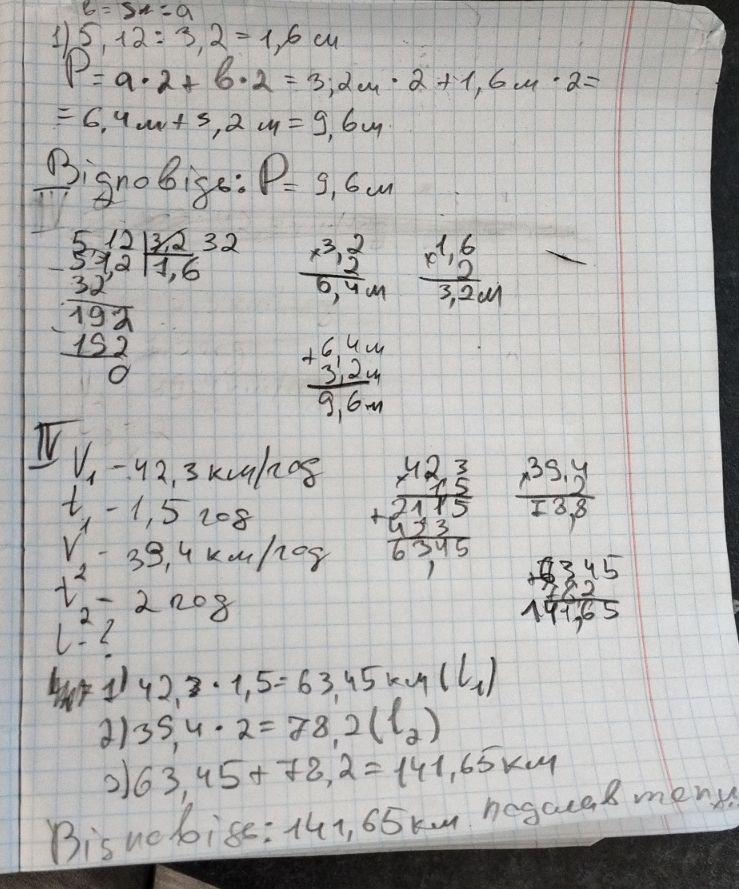 1) 5,12 : 3,2 = 1,6 м
P = a · 2 + b · 2 = 3,2 м · 2 + 1,6 м · 2 =
= 6,4 м + 3,2 м = 9,6 м
Відповідь: P = 9,6 м
5,12 | 3,2 32
51,2 | 1,6
32
192
192
0
× 3,2
2
6,4 м
× 1,6
2
3,2 м
+ 6,4 м
3,2 м
9,6 м
IV
V1 – 42,3 км/год
t1 – 1,5 год
V2 – 39,4 км/год
t2 – 2 год
l – ?
× 423
15
+ 2115
423
6345
× 39,4
2
78,8
+ 6345
782
141,65
1) 42,3 · 1,5 = 63,45 км (l1)
2) 39,4 · 2 = 78,2 (l2)
3) 63,45 + 78,2 = 141,65 км
Відповідь: 141,65 км подолав